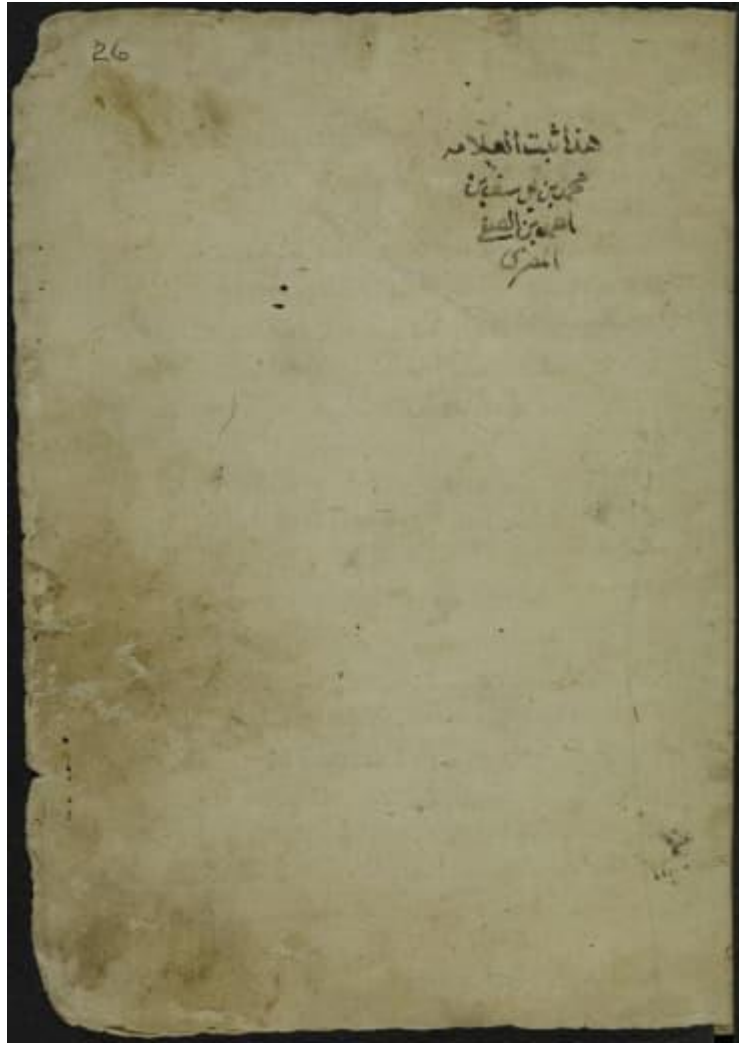 26
هذا ثبت العلامه
محمد بن يوسف بن
احمد بن الصفي
المصرى